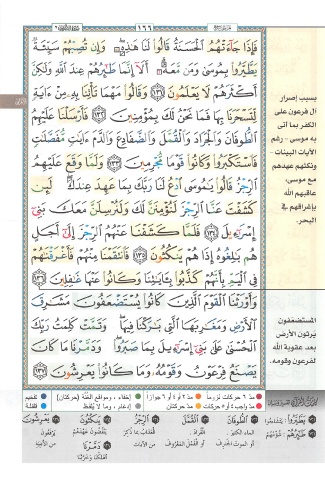 ١٦٦
فَإِذَا جَآءَتْهُمُ ٱلْحَسَنَةُ قَالُوا۟ لَنَا هَٰذِهِۦ ۖ وَإِن تُصِبْهُمْ سَيِّئَةٌ
يَطَّيَّرُوا۟ بِمُوسَىٰ وَمَن مَّعَهُۥٓ ۗ أَلَآ إِنَّمَا طَٰٓئِرُهُمْ عِندَ ٱللَّهِ وَلَٰكِنَّ
أَكْثَرَهُمْ لَا يَعْلَمُونَ ١٣١ وَقَالُوا۟ مَهْمَا تَأْتِنَا بِهِۦ مِنْ ءَايَةٍ
لِّتَسْحَرَنَا بِهَا فَمَا نَحْنُ لَكَ بِمُؤْمِنِينَ ١٣٢ فَأَرْسَلْنَا عَلَيْهِمُ
ٱلطُّوفَانَ وَٱلْجَرَادَ وَٱلْقُمَّلَ وَٱلضَّفَادِعَ وَٱلدَّمَ ءَايَٰتٍ مُّفَصَّلَٰتٍ
فَٱسْتَكْبَرُوا۟ وَكَانُوا۟ قَوْمًا مُّجْرِمِينَ ١٣٣ وَلَمَّا وَقَعَ عَلَيْهِمُ
ٱلرِّجْزُ قَالُوا۟ يَٰمُوسَى ٱدْعُ لَنَا رَبَّكَ بِمَا عَهِدَ عِندَكَ ۖ لَئِن
كَشَفْتَ عَنَّا ٱلرِّجْزَ لَنُؤْمِنَنَّ لَكَ وَلَنُرْسِلَنَّ مَعَكَ بَنِىٓ
إِسْرَٰٓءِيلَ ١٣٤ فَلَمَّا كَشَفْنَا عَنْهُمُ ٱلرِّجْزَ إِلَىٰٓ أَجَلٍ
هُم بَٰلِغُوهُ إِذَا هُمْ يَنكُثُونَ ١٣٥ فَٱنتَقَمْنَا مِنْهُمْ فَأَغْرَقْنَٰهُمْ
فِى ٱلْيَمِّ بِأَنَّهُمْ كَذَّبُوا۟ بِـَٔايَٰتِنَا وَكَانُوا۟ عَنْهَا غَٰفِلِينَ ١٣٦
وَأَوْرَثْنَا ٱلْقَوْمَ ٱلَّذِينَ كَانُوا۟ يُسْتَضْعَفُونَ مَشَٰرِقَ
ٱلْأَرْضِ وَمَغَٰرِبَهَا ٱلَّتِى بَٰرَكْنَا فِيهَا ۖ وَتَمَّتْ كَلِمَتُ رَبِّكَ
ٱلْحُسْنَىٰ عَلَىٰ بَنِىٓ إِسْرَٰٓءِيلَ بِمَا صَبَرُوا۟ ۖ وَدَمَّرْنَا مَا كَانَ
يَصْنَعُ فِرْعَوْنُ وَقَوْمُهُۥ وَمَا كَانُوا۟ يَعْرِشُونَ ١٣٧
بسبب إصرار
آل فرعون على
الكفر بما أتى
به موسى - رغم
الآيات البينات -
ونكثهم عهدهم
مع موسى،
عاقبهم الله
بإغراقهم في
البحر.
المستضعفون
يرثون الأرض
بعد عقوبة الله
لفرعون وقومه.
مدّ ٦ حركات لزوماً
مدّ ٢ أو ٤ أو ٦ جوازاً
إخفاء، ومواقع الغُنَّة (حركتان)
تفخيم
مدّ واجب ٤ أو ٥ حركات
مدّ حركتان
إدغام، وما لا يُلفَظ
قلقلة
يَطَّيَّرُوا
الطُّوفَانَ
القُمَّلَ
الرِّجْزُ
يَنكُثُونَ
يَعْرِشُونَ
دَمَّرْنَا